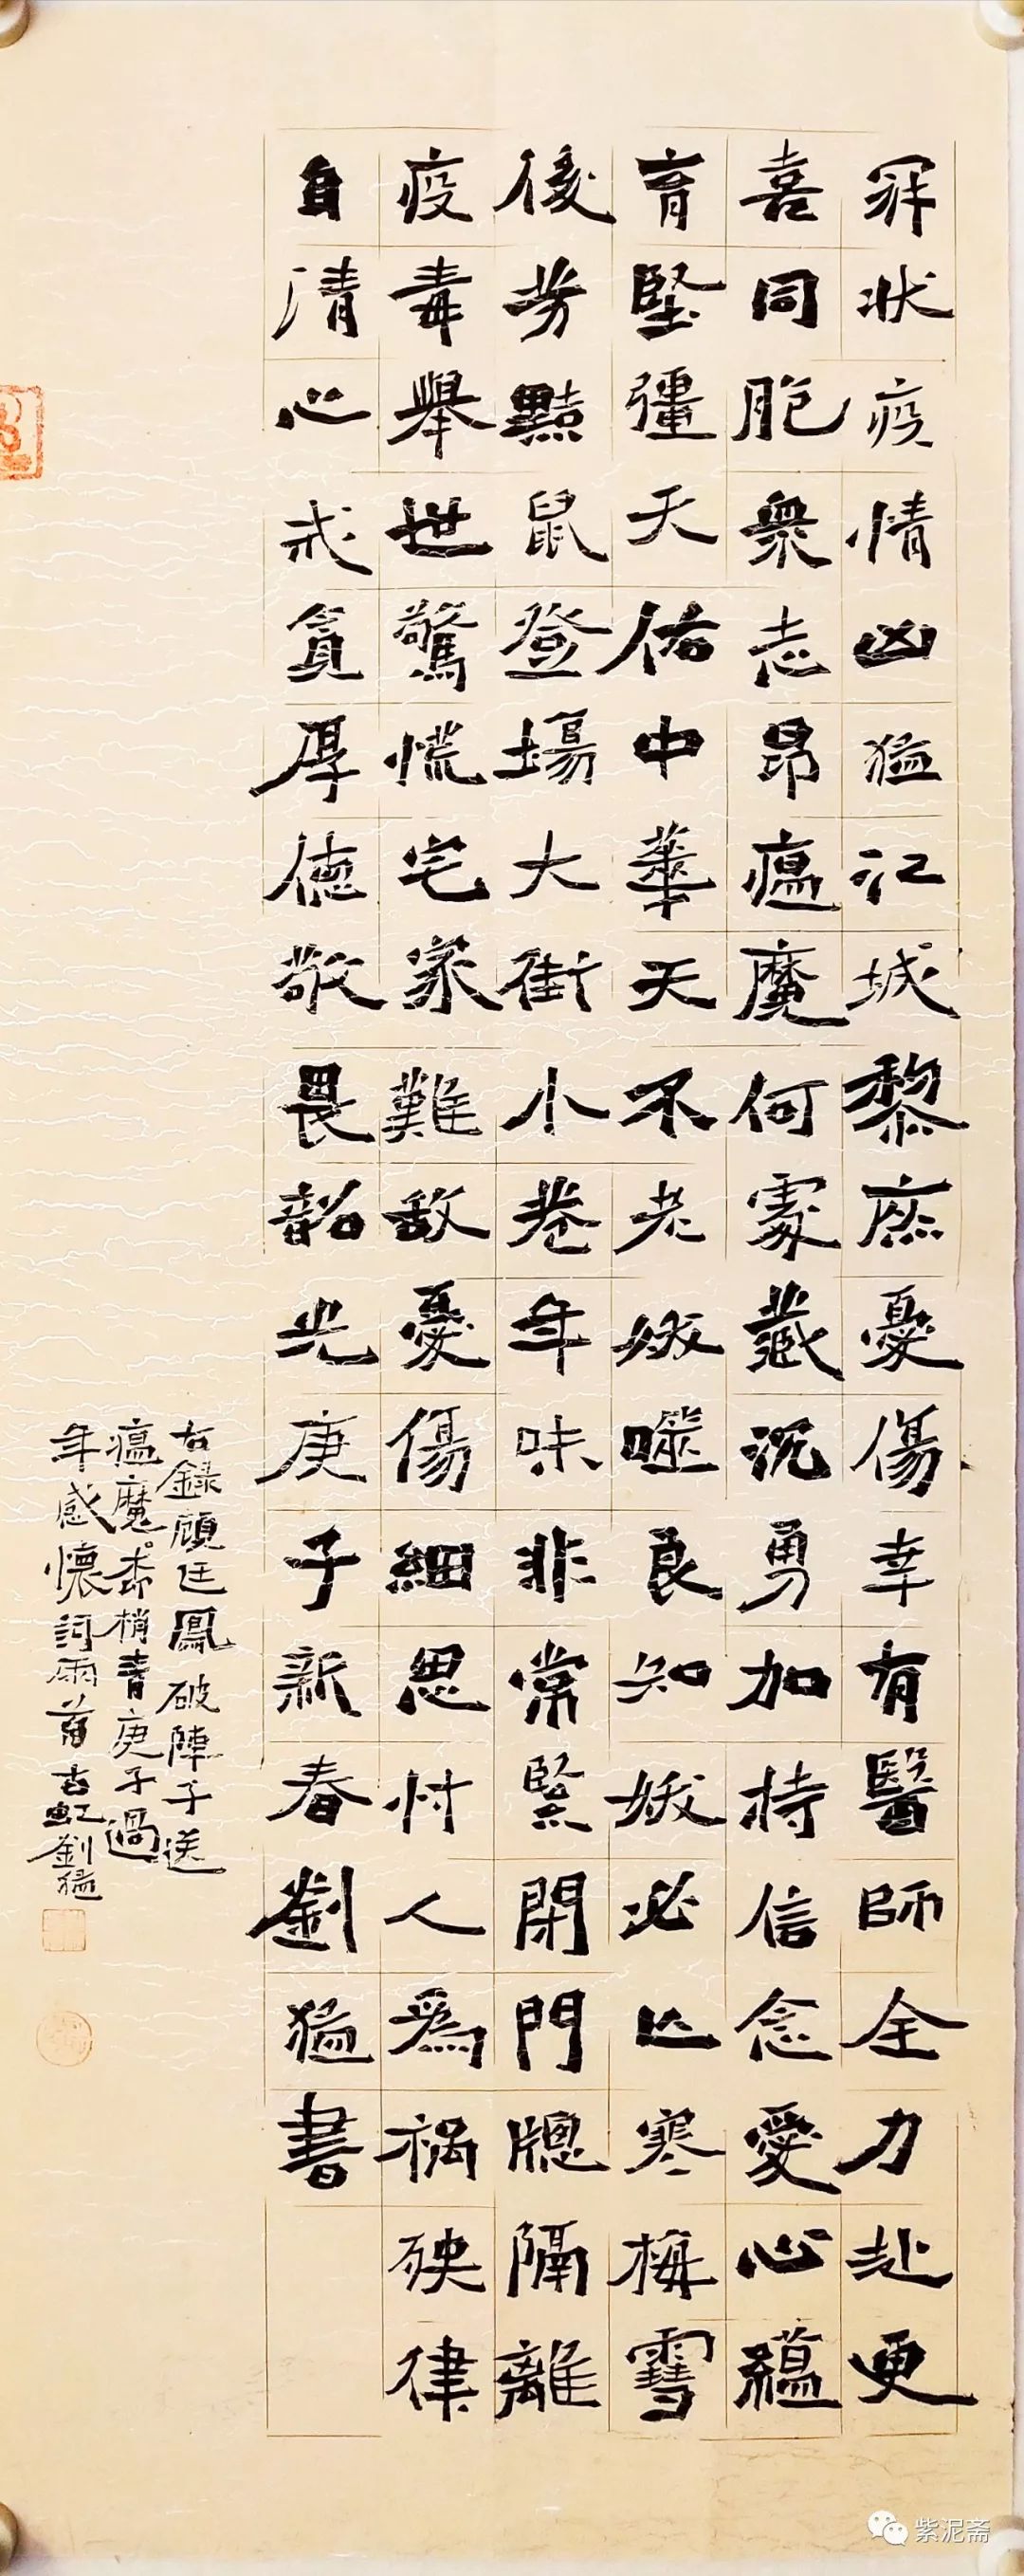 罙状疫情凶猛江城黎庶憂傷幸有醫師全力赴更
喜同胞衆志昂瘟魔何處藏沉勇加持信念愛心蘊
育堅彊天佑中華天不老娰噬良知娰必亡寒梅雪
後芳黠鼠登場大街小巷年味非常緊閉門牕隔離
疫毒舉世驚慌宅家難敵憂傷細思忖人為禍殃律
自清心戒貪厚德敬畏韶光庚子新春劉猛書
右錄顧廷鳳破陣子送
瘟魔柰梢青庚子過
年感懷詞兩首古虹劉猛
紫泥斋